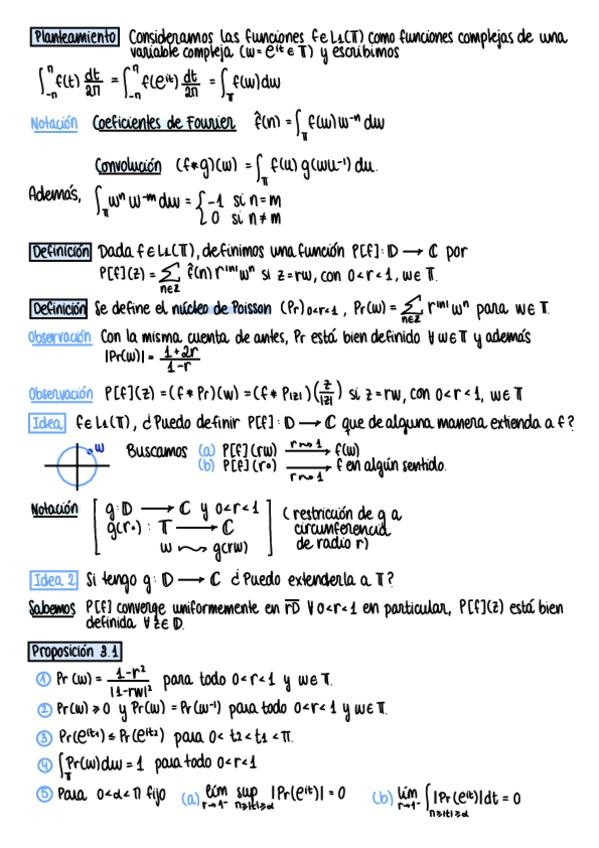 Planteamiento Consideramos las funciones f∈L₁(𝕋) como funciones complejas de una
variable compleja (w = e^{it} ∈ 𝕋) y escribimos
∫_{-π}^{π} f(t) dt/2π = ∫_{-π}^{π} f(e^{it}) dt/2π = ∫_𝕋 f(w)dw
Notación Coeficientes de Fourier f̂(n) = ∫_𝕋 f(w) w^{-n} dw
Convolución (f*g)(w) = ∫_𝕋 f(u) g(wu^{-1}) du.
Además, ∫_𝕋 w^n w^{-m} dw = { -1 si n=m
0 si n≠m
Definición Dada f∈L₁(𝕋), definimos una función P[f]: 𝔻 → ℂ por
P[f](z) = Σ_{n∈ℤ} f̂(n) r^{|n|} w^n si z=rw, con 0<r<1, w∈𝕋.
Definición Se define el núcleo de Poisson (Pr)_{0<r<1}, Pr(w) = Σ_{n∈ℤ} r^{|n|} w^n para w∈𝕋.
Observación Con la misma cuenta de antes, Pr está bien definido ∀w∈𝕋 y además
|Pr(w)| = (1+2r)/(1-r)
Observación P[f](z) = (f*Pr)(w) = (f*P_{|z|})(z/|z|) si z=rw, con 0<r<1, w∈𝕋
Idea f∈L₁(𝕋), ¿Puedo definir P[f]: 𝔻 → ℂ que de alguna manera extienda a f?
w
Buscamos (a) P[f](rw) →^{r→1} f(w)
(b) P[f](r•) →_{r→1} f en algún sentido.
Notación [ g: 𝔻 → ℂ y 0<r<1 (restricción de g a
g(r•): 𝕋 → ℂ circunferencia
w ⇝ g(rw) ] de radio r)
Idea 2 Si tengo g: 𝔻 → ℂ ¿Puedo extenderla a 𝕋?
Sabemos P[f] converge uniformemente en r𝔻̅ ∀0<r<1 en particular, P[f](z) está bien
definida ∀z∈𝔻.
Proposición 3.1
① Pr(w) = (1-r²)/|1-rw|² para todo 0<r<1 y w∈𝕋.
② Pr(w) ≥ 0 y Pr(w) = Pr(w^{-1}) para todo 0<r<1 y w∈𝕋.
③ Pr(e^{it₁}) ≤ Pr(e^{it₂}) para 0< t₂<t₁<π.
④ ∫_𝕋 Pr(w)dw = 1 para todo 0<r<1
⑤ Para 0<α<π fijo (a) lím_{r→1⁻} sup_{π≥|t|≥α} |Pr(e^{it})| = 0 (b) lím_{r→1⁻} ∫_{π≥|t|≥α} |Pr(e^{it})|dt = 0